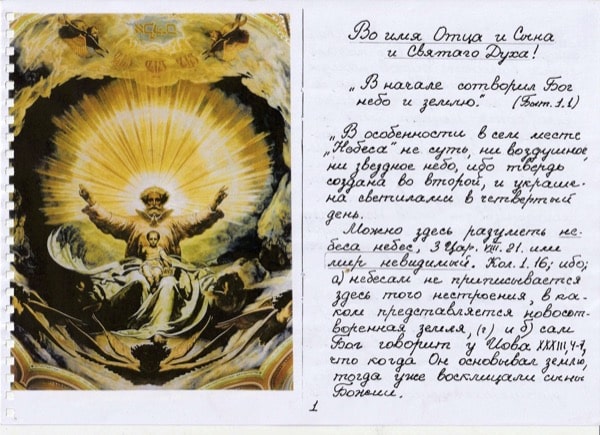 Во имя Отца и Сына
и Святаго Духа!
„В начале сотворил Бог
небо и землю." (Быт. 1.1)
„В особенности в сем месте
„Небеса" не суть, ни воздушное,
ни звездное небо, ибо твердь
создана во второй, и украше-
на светилами в четвертый
день.
Можно здесь разуметь не-
беса небес. 3 Цар. VIII. 21. или
мир невидимый. Кол. 1. 16; ибо;
а) небесам не приписывается
здесь того нестроения, в ка-
ком представляется новосот-
воренная земля, (г) и б) сам
Бог говорит у Иова XXXIII, 4-7,
что когда Он основывал землю,
тогда уже восклицали сыны
Божии.
1